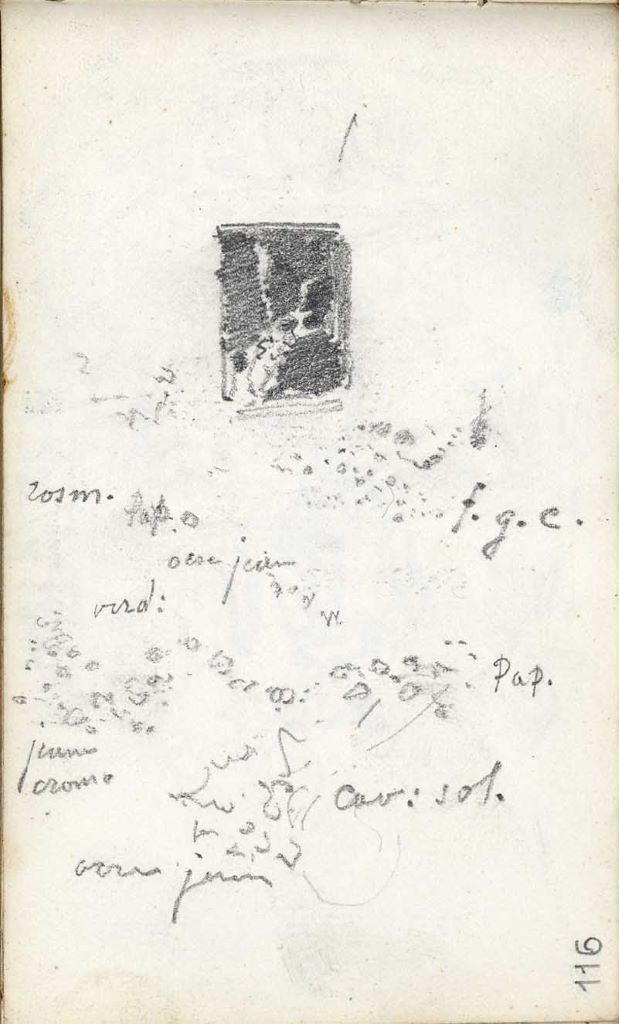 rosm.
Pap
f. g. c.
ocre jaun
verd:
Pap.
jaune
crome
cav: sol.
ocre jaun
116